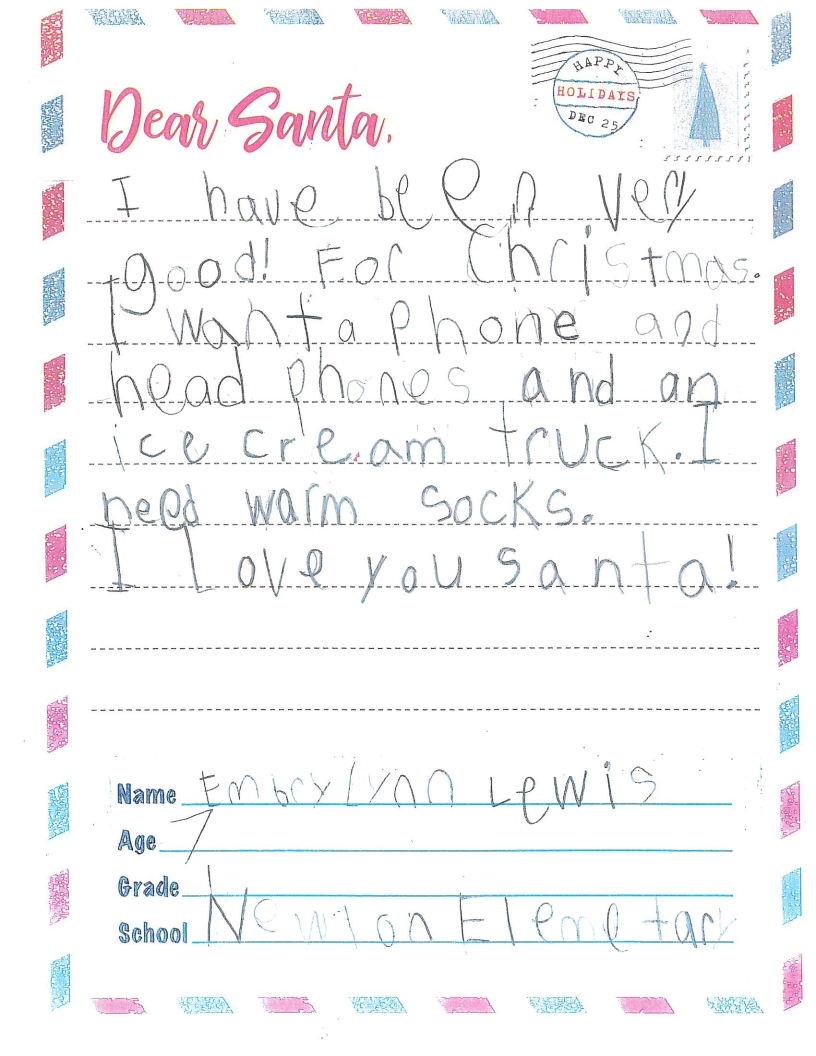 HAPPY
HOLIDAYS
DEC 25
Dear Santa,
I have been very
good! For Christmas.
I want a phone and
head phones and an
ice cream truck. I
need warm socks.
I Love you santa!
Name Embrylynn Lewis
Age 7
Grade 1
School Newton Elemetary